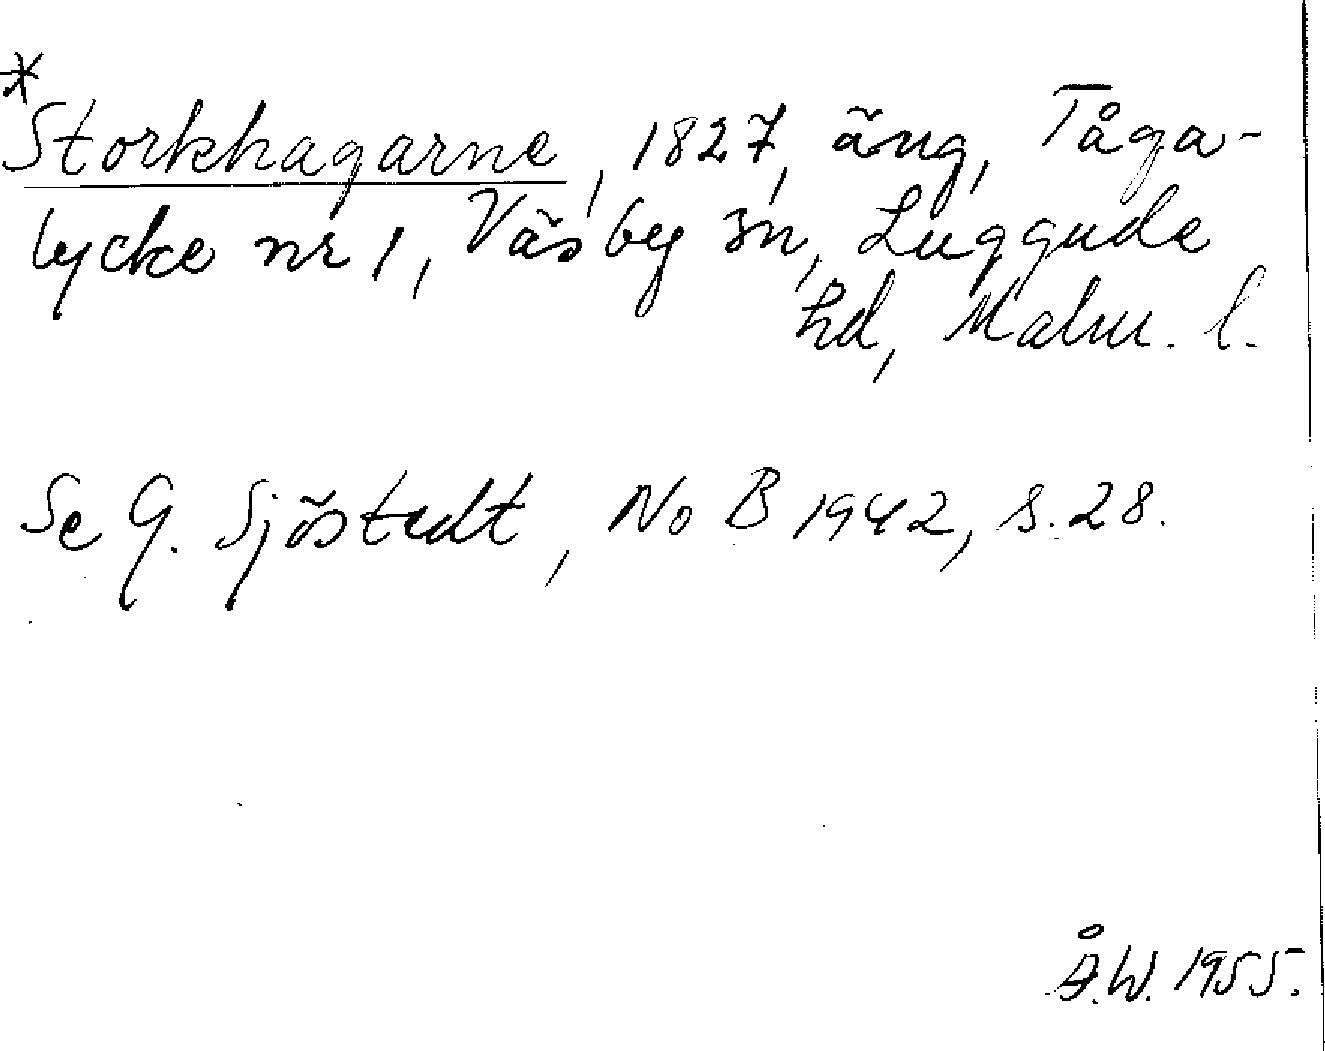 *
Storkhagarne, 1827, äng, Tåga-
lycke nr 1, Väsby sn, Luggude
hd, Malm. l.
Se G. Sjöstedt, No B 1942, s. 28.
Å.W. 1955.